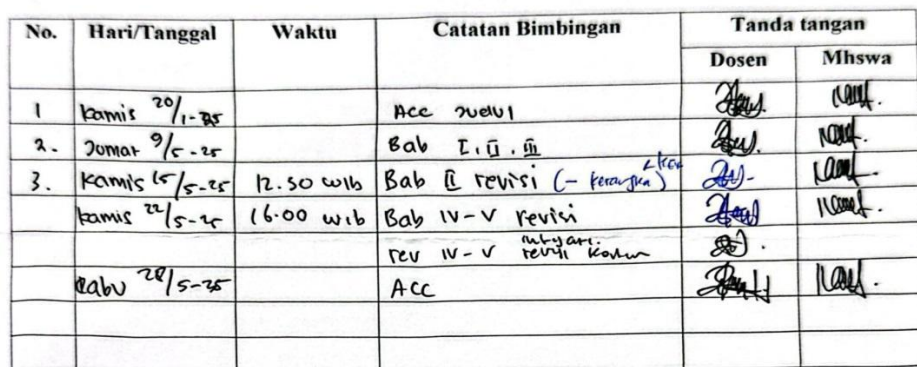 No. Hari/Tanggal Waktu Catatan Bimbingan Tanda tangan
Dosen Mhswa
1 Kamis 20/1-25 Acc Judul
2. Jumat 9/5-25 Bab I, II, III
3. Kamis 15/5-25 12.50 wib Bab II revisi (- kerangka)
Kamis 22/5-25 16.00 wib Bab IV-V revisi
rev IV-V revisi
Rabu 28/5-25 ACC